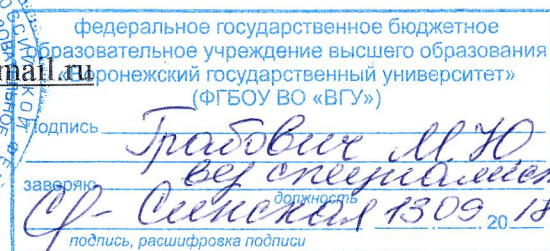 федеральное государственное бюджетное
образовательное учреждение высшего образования
mail.ru
«Воронежский государственный университет»
(ФГБОУ ВО «ВГУ»)
Подпись Грабович М Ю
заверяю вед специалист
должность
Синская 13 09 20 18
подпись, расшифровка подписи